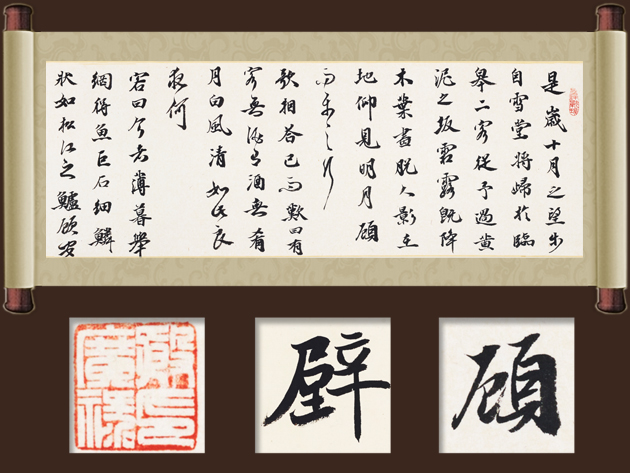 是歲十月之望步
自雪堂將歸於臨
皋二客從予過黃
泥之坂霜露既降
木葉盡脫人影在
地仰見明月顧
而樂之行
歌相答已而歎曰有
客無酒有酒無肴
月白風清如此良
夜何
客曰今者薄暮舉
網得魚巨石細鱗
狀如松江之鱸顧安
壁
顧